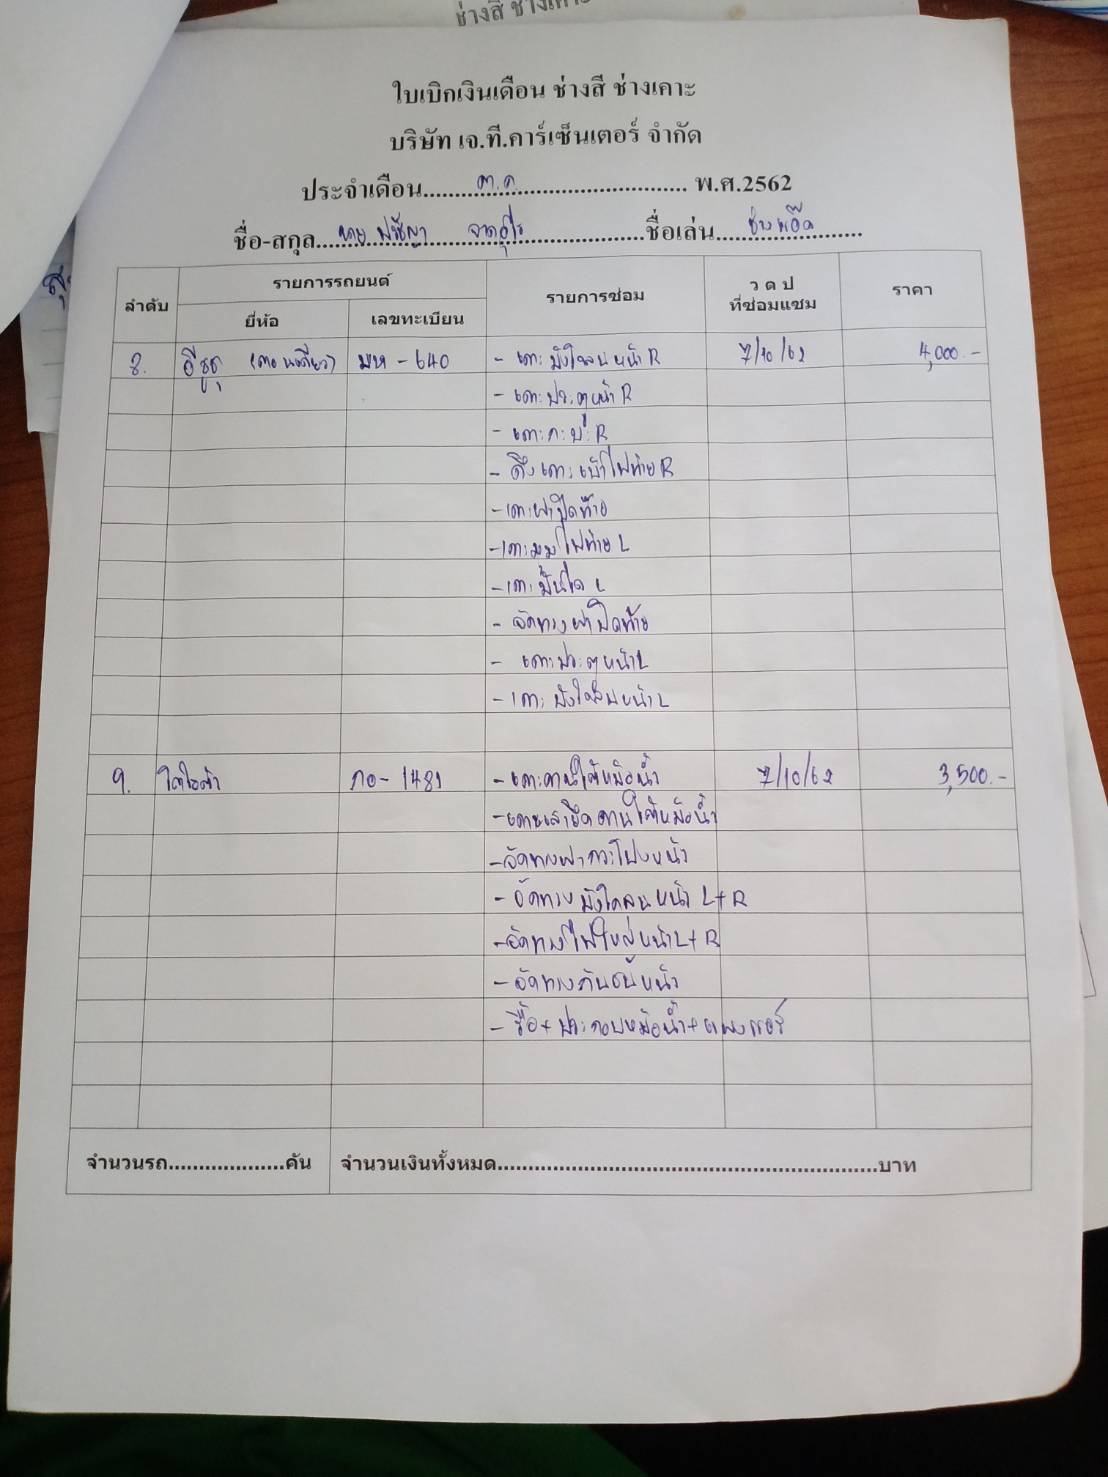 ช่างสี ช่างเคาะ
ใบเบิกเงินเดือน ช่างสี ช่างเคาะ
บริษัท เจ.ที.คาร์เซ็นเตอร์ จำกัด
ประจำเดือน ต.ค พ.ศ.2562
ชื่อ-สกุล นาย ปรัชญา ชื่อเล่น ช่างแอ๊ด
ลำดับ รายการรถยนต์ รายการซ่อม ว ด ป ที่ซ่อมแซม ราคา
ยี่ห้อ เลขทะเบียน
8. อีซูซุ (ตอนเดียว) มห - 640 - เคาะบังโคลนหน้า R 7/10/62 4,000.-
- เคาะประตูหน้า R
- เคาะกะบะ R
- ดึงเคาะเบ้าไฟท้าย R
- เคาะฝาปิดท้าย
- เคาะมุมไฟท้าย L
- เคาะบันได L
- จัดทรงฝาปิดท้าย
- เคาะประตูหน้า L
- เคาะบังโคลนหน้า L
9. โตโยต้า กอ - 1481 - เคาะคานใต้หม้อน้ำ 7/10/62 3,500.-
- เคาะเสายึดคานใต้หม้อน้ำ
- จัดทรงฝากระโปรงหน้า
- จัดทรงบังโคลนหน้า L+R
- จัดทรงไฟใหญ่หน้า L+R
- จัดทรงกันชนหน้า
- รื้อ+ประกอบหม้อน้ำ+แผงแอร์
จำนวนรถ....................คัน จำนวนเงินทั้งหมด................................................................บาท